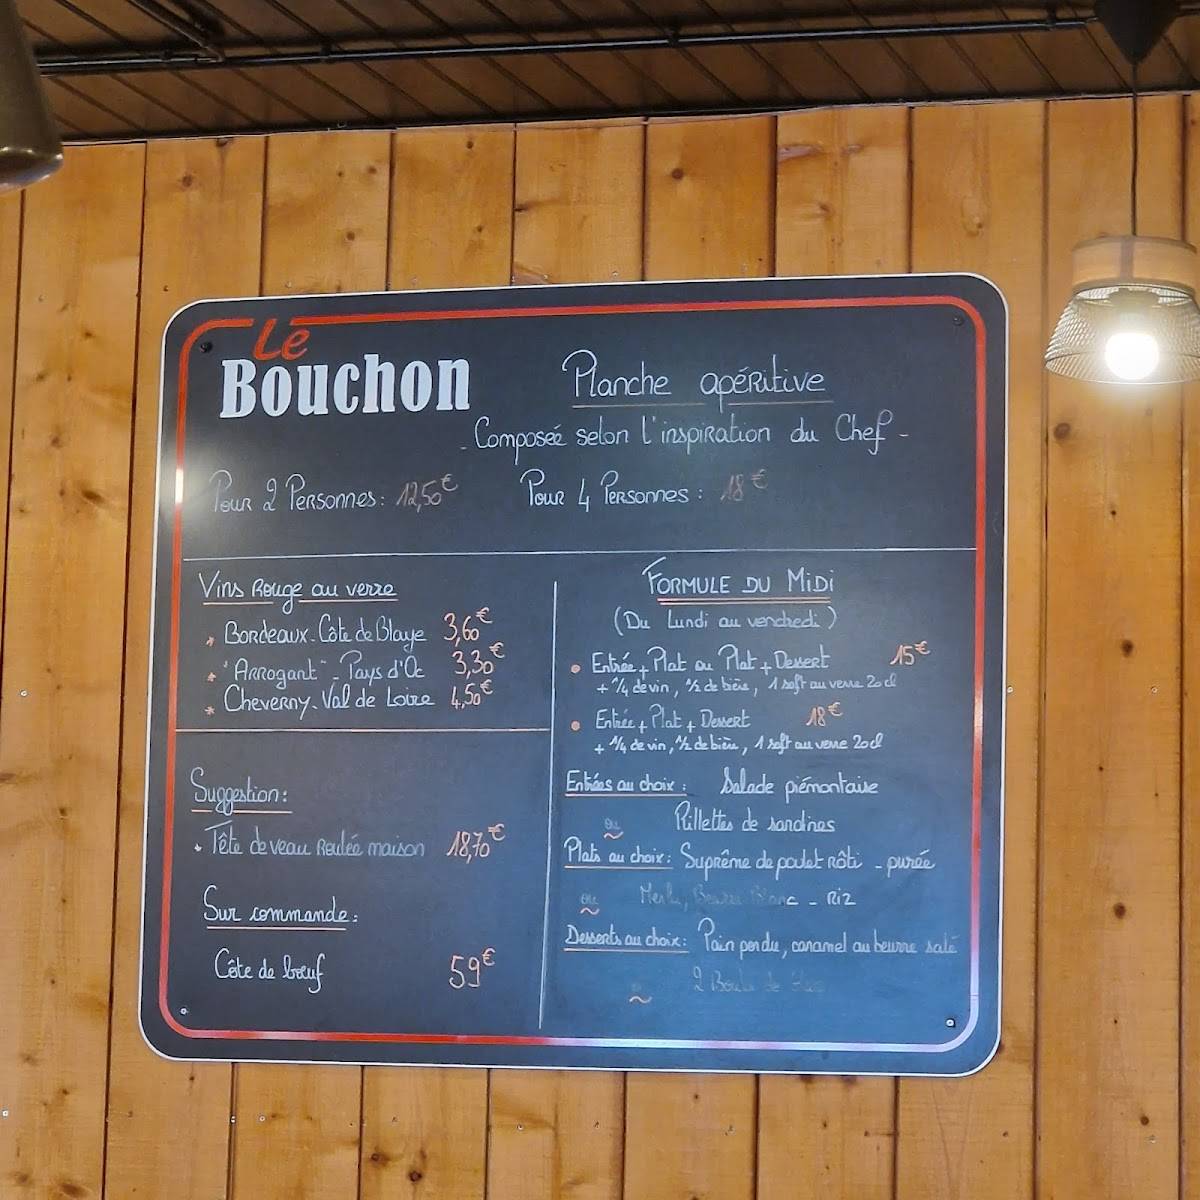 Le
Bouchon
Planche apéritive
- Composée selon l'inspiration du Chef -
Pour 2 Personnes : 12,50€ Pour 4 Personnes : 18€
Vins Rouge au verre
* Bordeaux - Côte de Blaye 3,60€
* "Arrogant" - Pays d'Oc 3,30€
* Cheverny - Val de Loire 4,50€
Suggestion :
* Tête de veau roulée maison 18,70€
Sur commande :
Côte de bœuf 59€
FORMULE DU MiDi
(Du Lundi au vendredi)
• Entrée + Plat ou Plat + Dessert 15€
+ 1/4 de vin, 1/2 de bière, 1 soft au verre 20cl
• Entrée + Plat + Dessert 18€
+ 1/4 de vin, 1/2 de bière, 1 soft au verre 20cl
Entrées au choix : Salade piémontaise
ou Rillettes de sardines
Plats au choix : Suprême de poulet rôti - purée
ou Merlu, Beurre Blanc - Riz
Desserts au choix : Pain perdu, caramel au beurre salé
2 Boules de